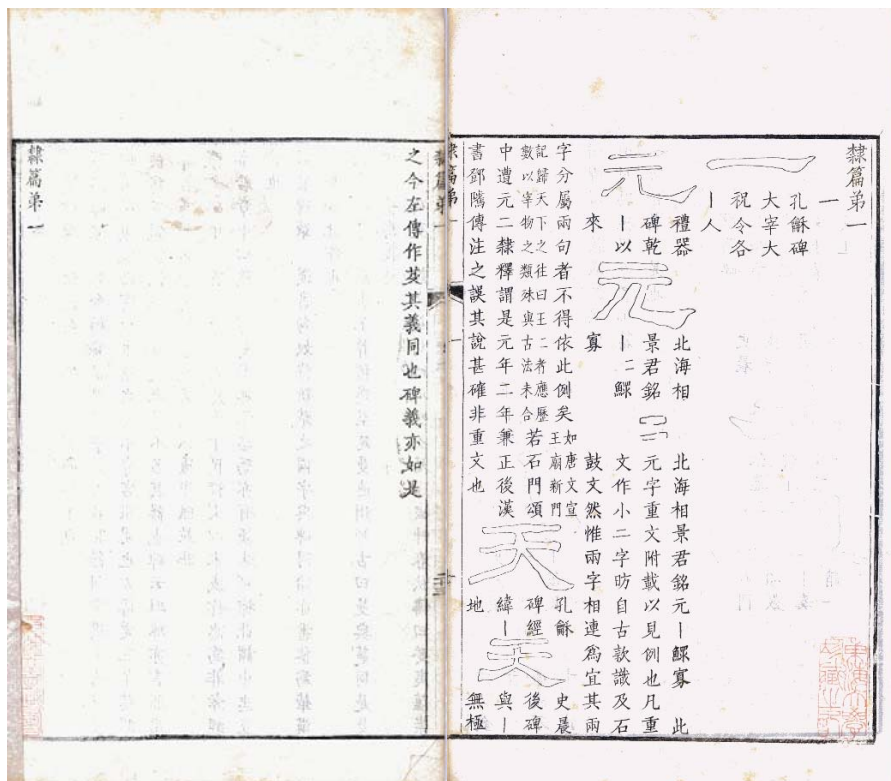 隸篇弟一
一
一
孔龢碑
大宰大
祝令各
丨人
元
禮器
碑乾
丨以
來
元
北海相
景君銘
丨二鰥
寡
二
北海相景君銘元丨鰥寡 此
元字重文附載以見例也凡重
文作小二字昉自古款識及石
鼓文然惟兩字相連為宜其兩
字分屬兩句者不得依此例矣
如唐文宣
王廟新門
記歸天下之往曰王二者應歷
數以宰物之類殊與古法未合
若石門頌
中遭元二隸釋謂是元年二年兼正後漢
書鄧隲傳注之誤其說甚確非重文也
天
孔龢
碑經
緯丨
地
天
史晨
後碑
與丨
無極
隸篇弟一
一
隸篇弟一
之今左傳作茇其義同也碑義亦如是
隸篇弟一